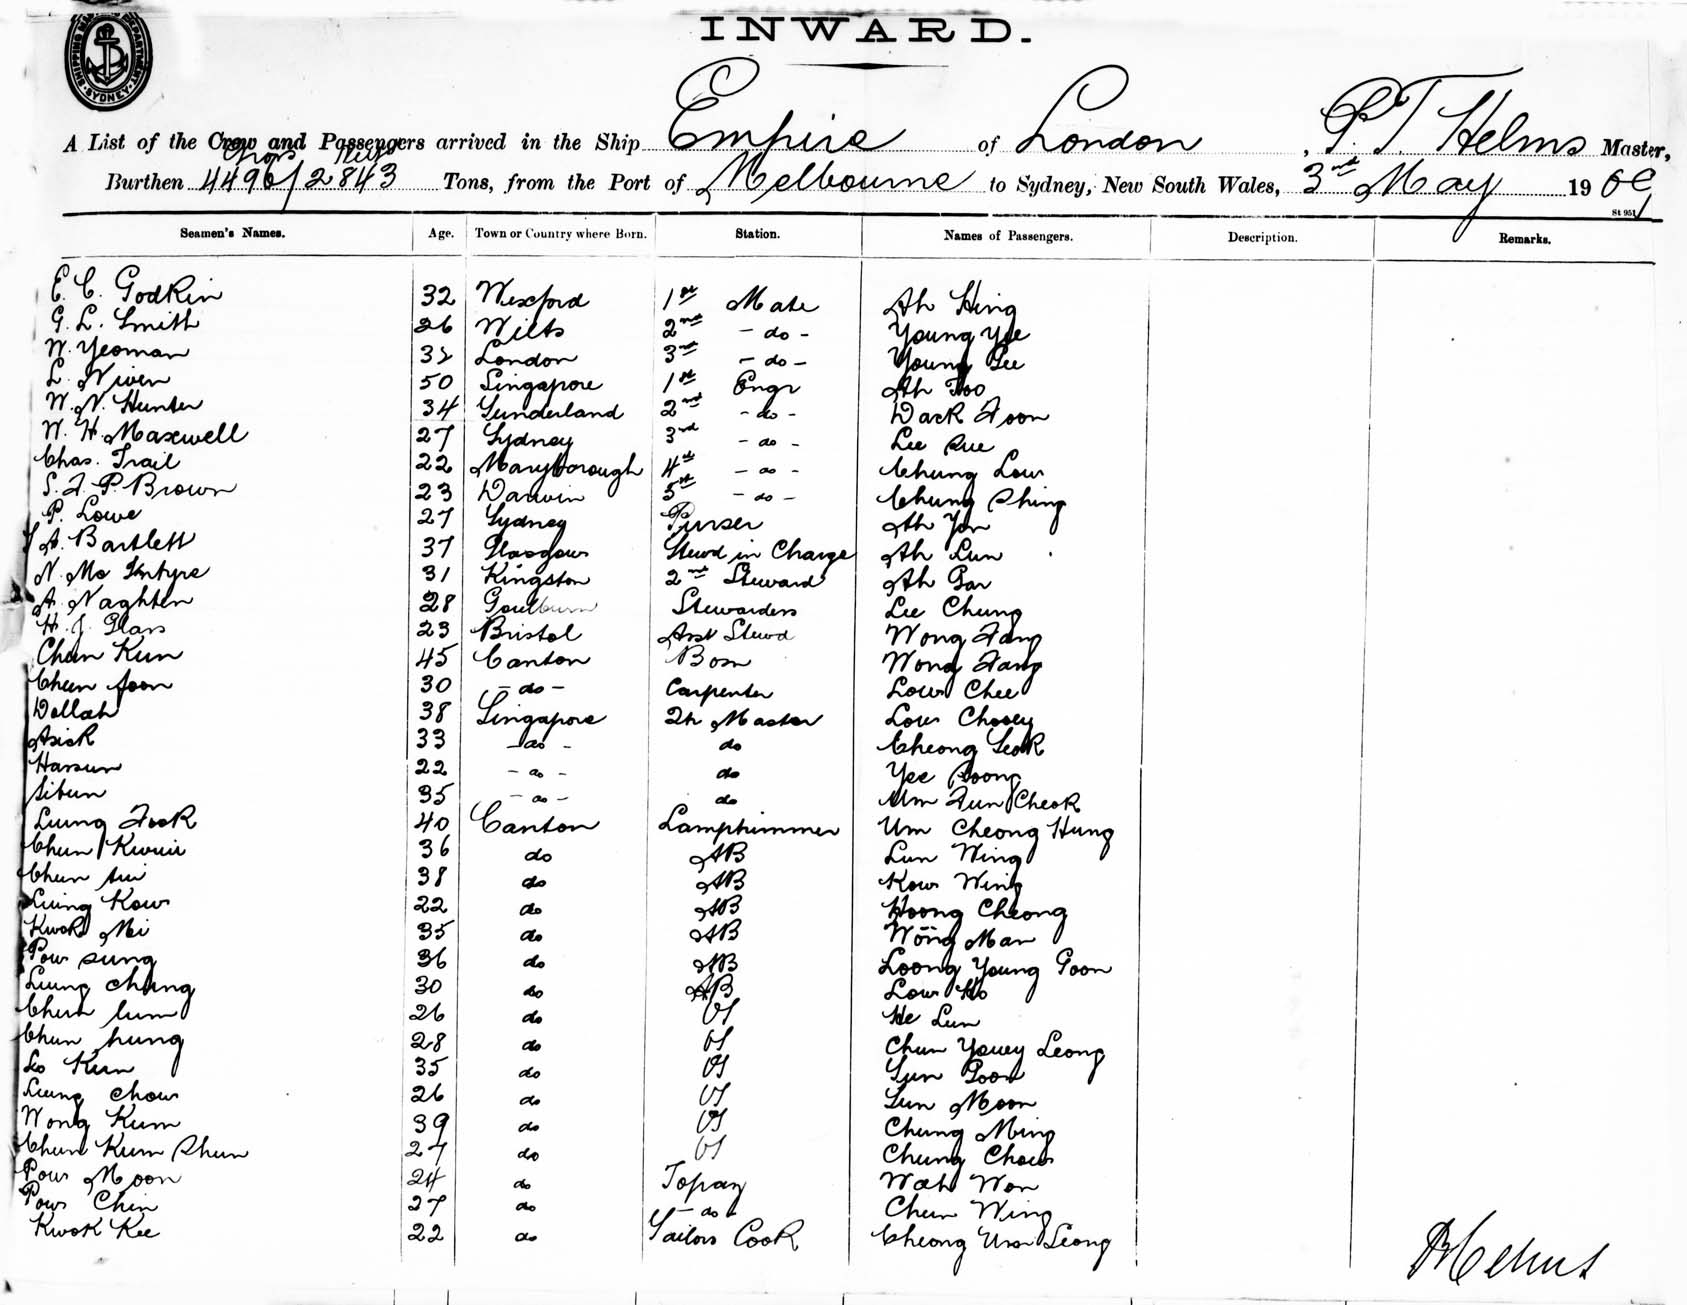 SHIPPING MASTERS DEPARTMENT SYDNEY
INWARD.
A List of the Crew and Passengers arrived in the Ship Empire of London, P. T. Helms Master,
Gross Nett
Burthen 4496/2843 Tons, from the Port of Melbourne to Sydney, New South Wales, 3rd May 190
St 951
Seamen's Names. Age. Town or Country where Born. Station. Names of Passengers. Description. Remarks.
E. C. Godkin 32 Wexford 1st Mate Ah Hing
G. L. Smith 26 Wilts 2nd - do - Young Yee
W. Yeoman 32 London 3rd - do - Young Gee
L. Niven 50 Singapore 1st Engr Ah Foo
W. N. Hunter 34 Sunderland 2nd - do - Dack Foon
W. H. Maxwell 27 Sydney 3rd - do - Lee Sue
Chas. Trail 22 Maryborough 4th - do - Chung Low
S. F. P. Brown 23 Darwin 5th - do - Chung Shing
P. Lowe 27 Sydney Purser Ah Yon
A. Bartlett 37 Glasgow Stewd in Charge Ah Lun
N. Mc Intyre 31 Kingston 2nd Steward Ah Gar
A. Naghten 28 Goulburn Stewardess Lee Chung
H. J. Glass 23 Bristol Asst Stewd Wong Fang
Chan Kun 45 Canton Bosn Wong Fang
Cheen Soon 30 - do - Carpenter Low Chee
Dollah 38 Singapore Qr Master Low Chooey
Asick 33 - do - do Cheong Seok
Hassun 22 - do - do Yee Poong
Situn 35 - do - do Um Fun Cheok
Luing Fook 40 Canton Lamptrimmer Um Cheong Hung
Chun 36 do AB Lun Wing
Chun Sui 38 do AB Kow Wing
Luing Kow 22 do AB Hoong Cheong
Kwok Mi 35 do AB Wong Man
Pow Sung 36 do AB Loong Young Goon
Luing Chung 30 do AB Low Ho
Chun Lum 26 do OS He Lun
Chun Hung 28 do OS Chun Youey Leong
Lo Kun 35 do OS Sun Goon
Luing Chow 26 do OS Sun Moon
Wong Kum 39 do OS Chung Ming
Chun Kum Shun 27 do OS Chung Chow
Pow Moon 24 do Topay Wah Won
Pow Chin 27 do - do - Chun Wing
Kwok Kee 22 do Sailors Cook Cheong Um Leong
P T Helms